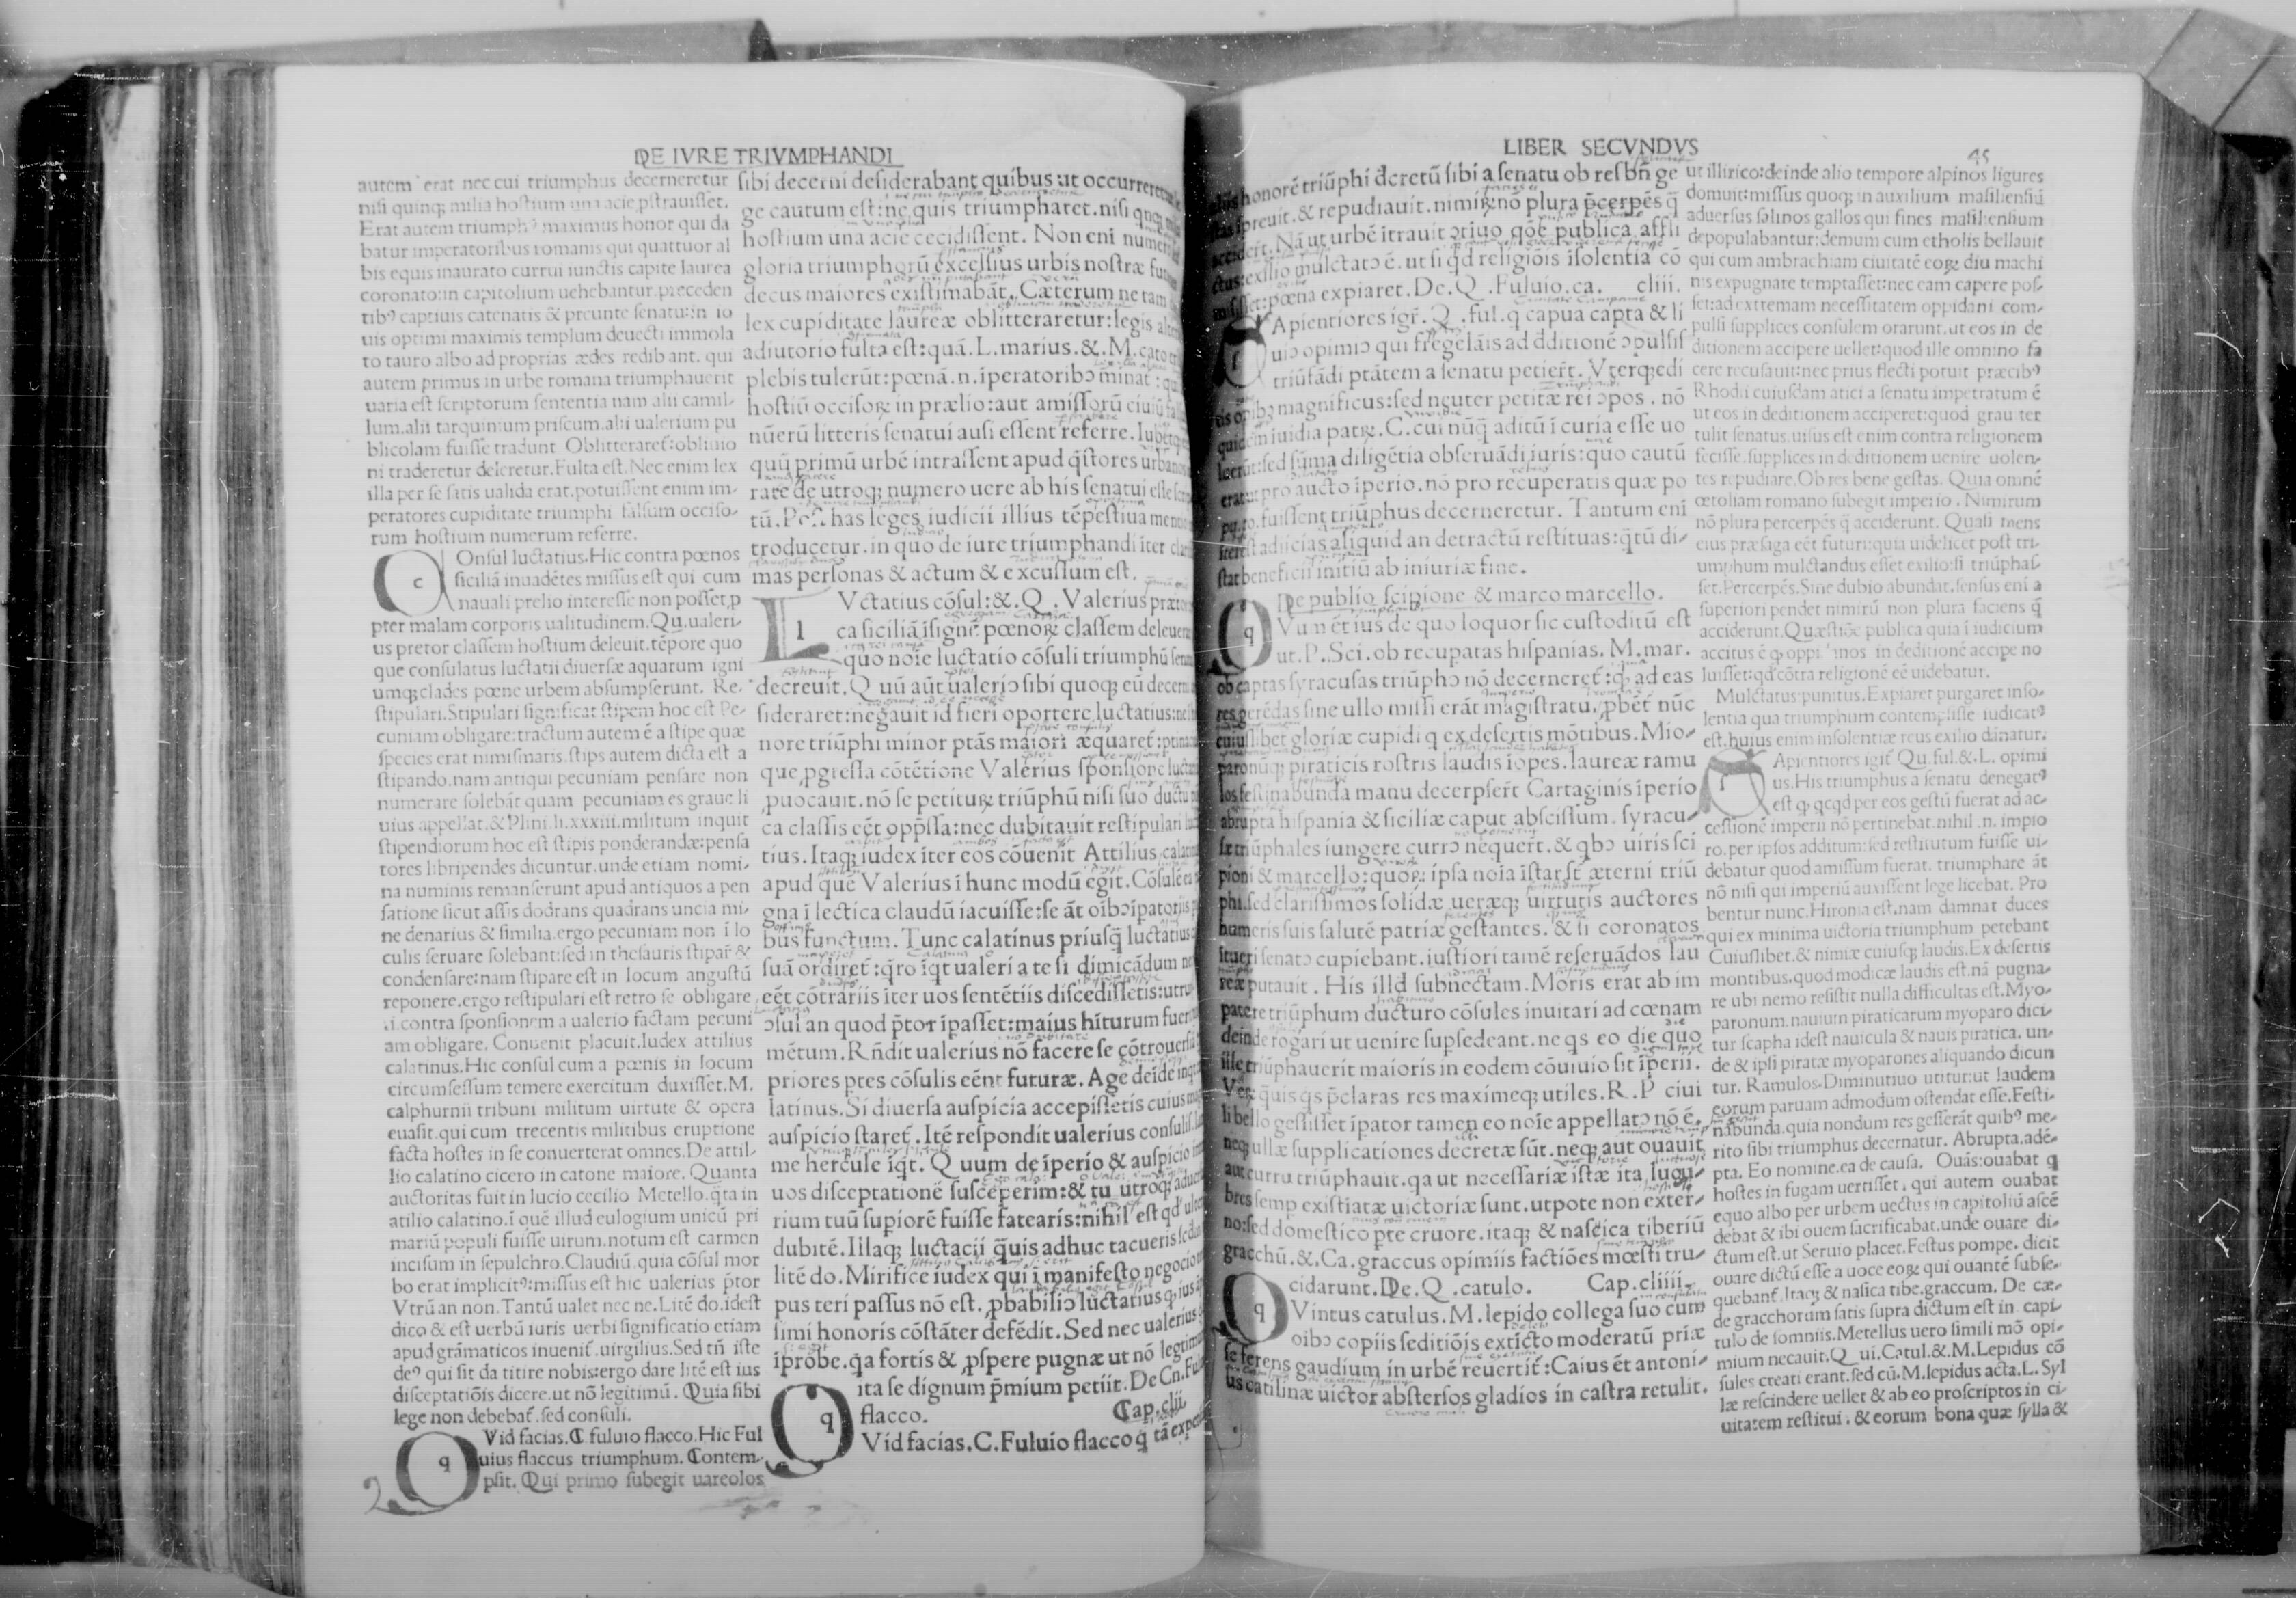 DE IVRE TRIVMPHANDI
autem erat nec cui triumphus decerneretur
nisi quinqꝫ milia hostium una acie ꝓstrauisset.
Erat autem triumphꝰ maximus honor qui da
batur imperatoribus romanis qui quattuor al
bis equis inaurato currui iunctis capite laurea
coronato:in capitolium uehebantur.preceden
tibꝰ captiuis catenatis & preunte senatu:in io
uis optimi maximis templum deuecti immola
to tauro albo ad proprias ædes redibant. qui
autem primus in urbe romana triumphauerit
uaria est scriptorum sententia nam alii camil-
lum.alii tarquinium priscum.alii ualerium pu
blicolam fuisse tradunt Oblitteraret̃:obliuio
ni traderetur deleretur.Fulta est.Nec enim lex
illa per se satis ualida erat.potuissent enim im-
peratores cupiditate triumphi falsum occiso-
rum hostium numerum referre.
c Onsul luctatius.Hic contra pœnos
siciliā inuadētes missus est qui cum
nauali prelio interesse non posset,ꝓ
pter malam corporis ualitudinem.Qu.ualeri-
us pretor classem hostium deleuit.tēpore quo
que consulatus luctatii diuersæ aquarum igni
umqꝫ clades pœne urbem absumpserunt. Re-
stipulari.Stipulari significat stipem hoc est Pe-
cuniam obligare:tractum autem ē a stipe quæ
species erat nimismaris.stips autem dicta est a
stipando.nam antiqui pecuniam pensare non
numerare solebāt quam pecuniam es graue li
uius appellat.& Plini.li.xxxiii.militum inquit
stipendiorum hoc est stipis ponderandæ:pensa
tores libripendes dicuntur.unde etiam nomi-
na numinis remanserunt apud antiquos a pen
satione sicut assis dodrans quadrans uncia mi-
ne denarius & similia.ergo pecuniam non ī lo
culis seruare solebant:sed in thesauris stipar̃ &
condensare:nam stipare est in locum angustū
reponere.ergo restipulari est retro se obligare
.i.contra sponsionem a ualerio factam pecuni
am obligare. Conuenit placuit.Iudex attilius
calatinus.Hic consul cum a pœnis in locum
circumsessum temere exercitum duxisset.M.
calphurnii tribuni militum uirtute & opera
euasit.qui cum trecentis militibus eruptione
facta hostes in se conuerterat omnes.De attil-
lio calatino cicero in catone maiore. Quanta
auctoritas fuit in lucio cecilio Metello.q̄ta in
atilio calatino.ī quē illud eulogium unicū pri
mariū populi fuisse uirum.notum est carmen
incisum in sepulchro.Claudiū.quia cōsul mor
bo erat implicitꝰ:missus est hic ualerius p̄tor
Vtrū an non.Tantū ualet nec ne.Litē do.idest
dico & est uerbū iuris uerbi significatio etiam
apud grāmaticos inuenit̃.uirgilius.Sed tñ iste
deꝰ qui sit da titire nobis:ergo dare litē est ius
disceptatiōis dicere.ut nō legitimū. Quia sibi
lege non debebat̃.sed consuli.
q Vid facias.C fuluio flacco.Hic Ful
uius flaccus triumphum. Contem-
psit. Qui primo subegit uareolos
2
sibi decerni desiderabant quibus:ut occurreretur
ge cautum est:ne quis triumpharet.nisi qnqꝫ
hostium una acie cecidissent. Non eni numero
gloria triumphorū excelsius urbis nostræ futu
decus maiores existimabāt. Cæterum ne tam
lex cupiditate laureæ oblitteraretur:legis alte
adiutorio fulta est:quā.L.marius.&.M.cato
plebis tulerūt:pœnā.n.īperatoribꝰ minat̃:
hostiū occisoꝝ in prælio:aut amissorū ciuiū
nūerū litteris senatui ausi essent referre.
quū primū urbē intrassent apud q̄stores urbanos
rare de utroqꝫ numero uere ab his senatui esse
tū.Post has leges iudicii illius tēpestiua
troducetur.in quo de iure triumphandi iter
mas personas & actum & excussum est.
l Vctatius cōsul:&.Q.Valerius præto
ca siciliā īsignē pœnoꝝ classem deleuerunt
quo noīe luctatio cōsuli triumphū
decreuit.Quū aūt ualeriꝰ sibi quoqꝫ eū decerni
sideraret:negauit id fieri oportere luctatius:
nore triūphi minor ptās maiori æquaret̃:
que,ꝓgressa cōtētione Valerius sponsione
ꝓuocauit.nō se petituꝝ triūphū nisi suo ductu
ca classis eēt opp̄ssa:nec dubitauit restipulari
tius.Itaqꝫ iudex iter eos cōuenit Attilius
apud quē Valerius ī hunc modū egit.Cōsulē
gna ī lectica claudū iacuisse:se āt oībꝰ
bus functum.Tunc calatinus priusq̄ luctatius
suā ordiret̃:q̄ro īqt ualeri a te si dimicādum
eēt cōtrariis iter uos sentētiis discedissetis:
ꝯsul an quod p̄tor īpasset:maius hiturum
mētum.Rñdit ualerius nō facere se
priores ptes cōsulis eēnt futuræ.Age deide
latinus.Si diuersa auspicia accepissetis cuius
auspicio staret̃.Itē respondit ualerius consulis
me hercule iqt.Quum de īperio & auspicio
uos disceptationē susceperim:& tu utroqꝫ
rium tuū supiorē fuisse fatearis:nihil est qd
dubitē.Iilaqꝫ luctacii q̄uis adhuc tacueris
litē do.Mirifice iudex qui ī manifesto negocio
pus teri passus nō est.ꝓbabiliꝰ luctatius
simi honoris cōstāter defēdit.Sed nec ualerius
īprobe.qa fortis & ꝓspere pugnæ ut nō
ita se dignum p̄mium petiit.De Cn.
flacco. Cap.clii.
q Vid facias.C.Fuluio flacco q̄ tā
LIBER SECVNDVS
45
honorē triūphi dcretū sibi a senatu ob res bñ ge
spreuit.& repudiauit.nimiꝝ:nō plura p̄cerpēs q̄
Nā ut urbē itrauit ꝯtiuo qōe publica affli
exilio mulctatꝰ ē.ut si qd religiōis isolentia cō
pœna expiaret.De.Q.Fuluio.ca. cliii.
s Apientiores igr̃.Q.ful.q capua capta & li
uiꝰ opimiꝰ qui fregelāis ad dditionē ꝯpulsis
triūfādi ptātem a senatu petier̃t.Vterqꝫ edi
magnificus:sed neuter petitæ rei ꝯpos.nō
iuidia patꝝ.C.cui nūq̄ aditū ī curia esse uo
sed sūma diligētia obseruādi iuris:quo cautū
pro aucto īperio.nō pro recuperatis quæ po
fuissent triūphus decerneretur. Tantum eni
adiicias aliquid an detractū restituas:q̄tū di-
stat beneficii initiū ab iniuriæ fine.
De publio scipione & marco marcello.
q Vum ēt ius de quo loquor sic custoditū est
ut.P.Sci.ob recupatas hispanias. M.mar.
ob captas syracusas triūphꝰ nō decerneret̃:qꝫ ad eas
res gerēdas sine ullo missi erāt magistratu.ꝓbēt nūc
cuiuslibet gloriæ cupidi q ex desertis mōtibus.Mio-
paronūqꝫ piraticis rostris laudis iopes.laureæ ramu
los festinabunda manu decerpser̃t Cartaginis īperio
abrupta hispania & siciliæ caput abscissum.syracu-
sæ triūphales iungere currꝰ nequer̃t.& qbꝰ uiris sci
pioni & marcello:quoꝝ:ipsa noīa īstar st̄ æterni triū
phi.sed clarissimos solidæ ueræqꝫ uirtutis auctores
humeris suis salutē patriæ gestantes. & si coronatos
itueri senatꝰ cupiebant.iustiori tamē reseruādos lau
reæ putauit. His illd subnectam. Moris erat ab im
patere triūphum ducturo cōsules inuitari ad cœnam
deinde rogari ut uenire supsedeant.ne qs eo die quo
ille triūphauerit maioris in eodem cōuiuio sit īperii.
Veꝝ q̄uis qs p̄claras res maximeqꝫ utiles.R.P ciui
li bello gessisset īpator tamen eo noīe appellatꝰ nō ē.
neqꝫ ullæ supplicationes decretæ sūt.neqꝫ aut ouauit
aut curru triūphauit.qa ut necessariæ istæ ita lugu-
bres semp existiatæ uictoriæ sunt.utpote non exter-
no:sed domestico pte cruore.itaqꝫ & naseica tiberiū
gracchū.&.Ca.graccus opimiis factiōes mœsti tru-
cidarunt.De.Q.catulo. Cap.cliiii.
q Vintus catulus.M.lepido collega suo cum
oībꝰ copiis seditiōis extīcto moderatū priæ
se ferens gaudium in urbē reuertit̃:Caius ēt antoni-
us catilinæ uictor abstersos gladios in castra retulit.
ut illirico:deinde alio tempore alpinos ligures
domuit:missus quoqꝫ in auxilium masiliensiū
aduersus solinos gallos qui fines masiliensium
depopulabantur:demum cum etholis bellauit
qui cum ambrachiam ciuitatē eoꝝ diu machi
nis expugnare temptasset:nec eam capere pos-
set:ad extremam necessitatem oppidani com-
pulsi supplices consulem orarunt.ut eos in de
ditionem accipere uellet:quod ille omnino fa
cere recusauit:nec prius flecti potuit præcibꝰ
Rhodii cuiusdam atici a senatu impetratum ē
ut eos in deditionem acciperet:quod grauiter
tulit senatus.uisus est enim contra religionem
fecisse.supplices in deditionem uenire uolen-
tes repudiare.Ob res bene gestas. Quia omnē
œtoliam romano subegit imperio. Nimirum
nō plura percerpēs q̄ acciderunt. Quasi mens
eius præsaga eēt futuri:quia uidelicet post tri-
umphum mulctandus esset exilio:si triūphas-
set.Percerpēs.Sine dubio abundat.sensus enī a
superiori pendet nimirū non plura faciens q̄
acciderunt.Quæstiōe publica quia ī iudicium
accitus ē qꝫ oppidanos in deditionē accipe no
luisset:qd cōtra religionē eē uidebatur.
Mulctatus:punitus.Expiaret purgaret inso-
lentia qua triumphum contempsisse iudicatꝰ
est.huius enim insolentiæ reus exilio dānatur.
s Apientiores igit̃ Qu.ful.&.L. opimi
us.His triumphus a senatu denegatꝰ
est qꝫ qcqd per eos gestū fuerat ad ac-
cessionē imperii nō pertinebat.nihil .n. impio
ro.per ipsos additum:sed restitutum fuisse ui-
debatur quod amissum fuerat. triumphare āt
nō nisi qui imperiū auxissent lege licebat. Pro
bentur nunc.Hironia est.nam damnat duces
qui ex minima uictoria triumphum petebant
Cuiuslibet.& nimiæ cuiusqꝫ laudis.Ex desertis
montibus.quod modicæ laudis est.nā pugna-
re ubi nemo resistit nulla difficultas est.Myo-
paronum.nauium piraticarum myoparo dici-
tur scapha idest nauicula & nauis piratica. un-
de & ipsi piratæ myoparones aliquando dicun
tur. Ramulos.Diminutiuo utitur:ut laudem
eorum paruam admodum ostendat esse.Festi-
nabunda.quia nondum res gesserāt quibꝰ me-
rito sibi triumphus decernatur. Abrupta.adē-
pta. Eo nomine.ea de causa. Ouās:ouabat q
hostes in fugam uertisset. qui autem ouabat
equo albo per urbem uectus in capitoliū ascē
debat & ibi ouem sacrificabat.unde ouare di-
ctum est.ut Seruio placet.Festus pompe. dicit
ouare dictū esse a uoce eoꝝ qui ouantē subse-
quebant̃.Itaqꝫ & nasica tibe.graccum. De cæ-
de gracchorum satis supra dictum est in capi-
tulo de somniis.Metellus uero simili mō opi-
mium necauit.Qui.Catul.&.M.Lepidus cō
sules creati erant.sed cū.M.lepidus acta.L.Syl
læ rescindere uellet & ab eo proscriptos in ci-
uitatem restitui.& eorum bona quæ sylla &